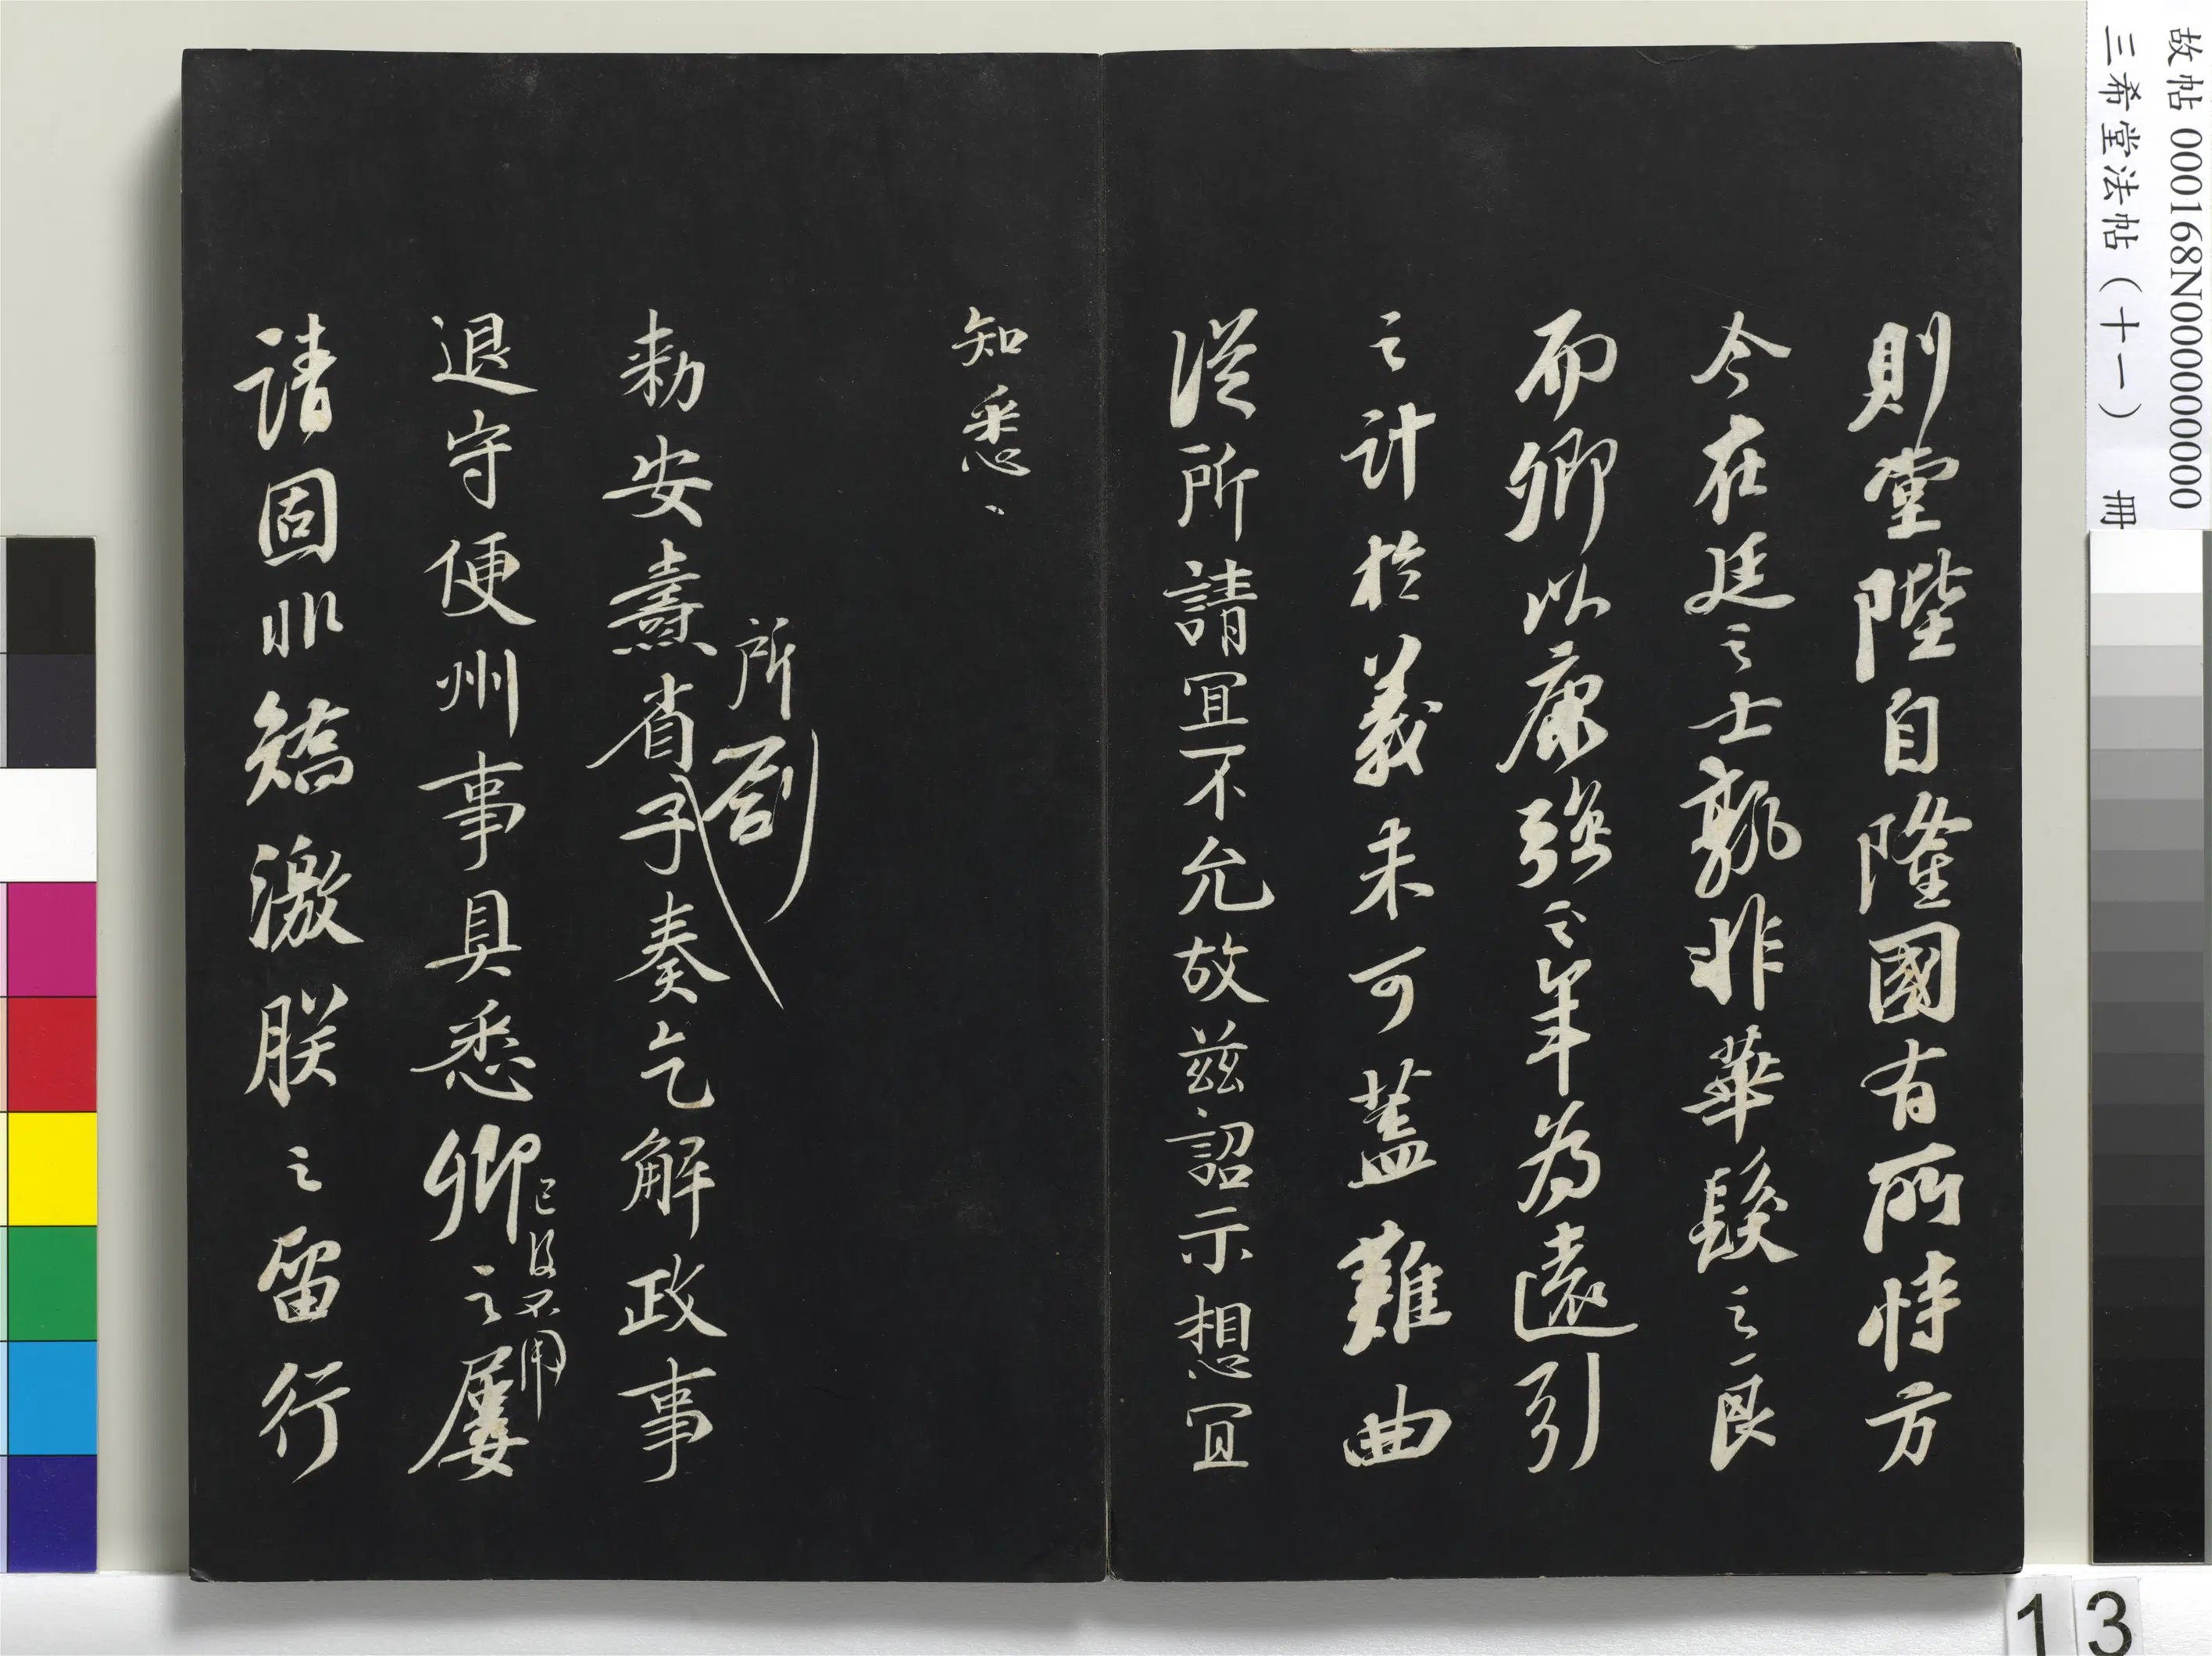 故帖 000168N000000000
三希堂法帖（十一） 冊
則堂陛自隆國有所恃方
今在廷之士孰非華髮之良
而卿以康強之年為遠引
之計於義未可蓋難曲
從所請宜不允故茲詔示想宜
知悉
敕安燾省所劄子奏乞解政事
退守便州事具悉卿之屢
已後不用
請固非矯激朕之留行
13